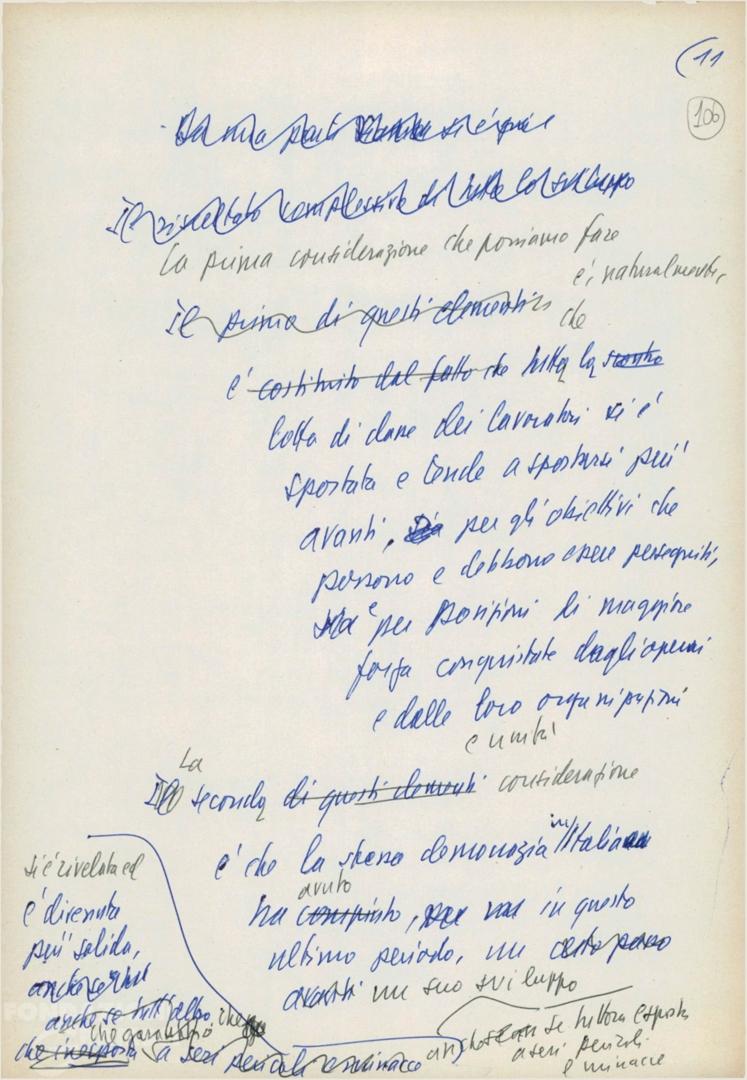 (11
106
Da una parte si è
Il risultato complessivo di tutto lo sviluppo
La prima considerazione che possiamo fare
è, naturalmente,
Il primo di questi elementi
che
è costituito dal fatto che tutta la
lotta di classe dei lavoratori si è
spostata e tende a spostarsi più
avanti, sia per gli obiettivi che
possono e debbono essere perseguiti,
sia per posizioni di maggiore
forza conquistate dagli operai
e dalle loro organizzazioni
e unità
La
Il seconda di questi elementi considerazione
è che la stessa democrazia in Italia
avuto
ha compiuto, in questo
ultimo periodo, un certo passo
avanti un suo sviluppo
si è rivelata ed
è divenuta
più solida,
anche se
anche se tutt'altro che
che garantita
che a seri pericoli e minacce
anche se tuttora esposta
a seri pericoli
e minacce